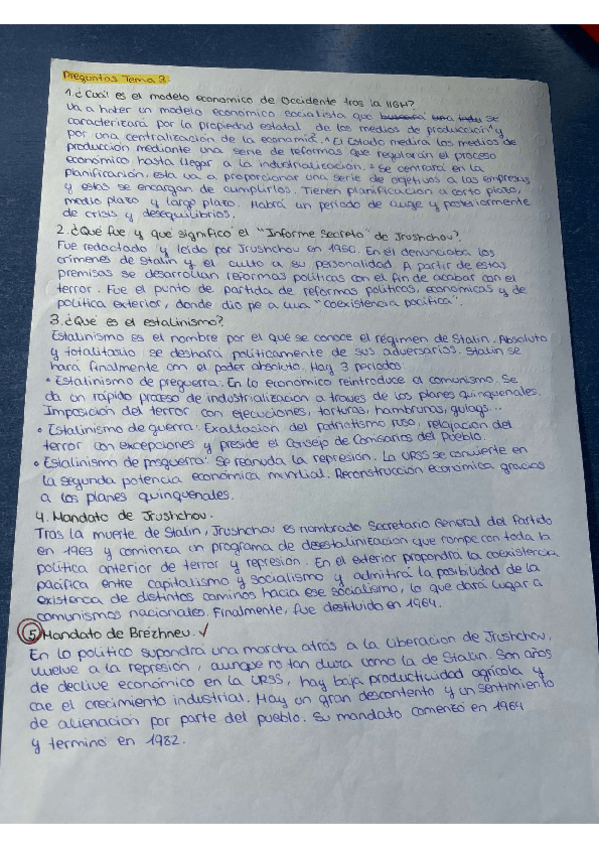 Preguntas Tema 3.
1.¿Cuál es el modelo economico de Occidente tras la IIGM?
Va a haber un modelo economico socialista que se
caracterizará por la propiedad estatal de los medios de producción y
por una centralización de la economía. El Estado medirá los medios de
producción mediante una serie de reformas que regularán el proceso
económico hasta llegar a la industrialización. Se centrará en la
planificación, esta va a proporcionar una serie de objetivos a las empresas
y estas se encargan de cumplirlos. Tienen planificación a corto plazo,
medio plazo y largo plazo. Habrá un periodo de auge y posteriormente
de crisis y desequilibrios.
2.¿Qué fue y que significó el "Informe Secreto" de Jrushchov?
Fue redactado y leido por Jrushchov en 1960. En él denunciaba los
crimenes de Stalin y el culto a su personalidad. A partir de estas
premisas se desarrollan reformas politicas con el fin de acabar con el
terror. Fue el punto de partida de reformas politicas, economicas y de
politica exterior, donde dio pe a una "coexistencia pacífica".
3.¿Qué es el estalinismo?
Estalinismo es el nombre por el que se conoce el régimen de Stalin. Absoluto
y totalitario se deshará politicamente de sus adversarios. Stalin se
hará finalmente con el poder absoluto. Hay 3 periodos:
• Estalinismo de preguerra: En lo economico reintroduce al comunismo. Se
da un rápido proceso de industrialización a traves de los planes quinquenales.
Imposición del terror con ejecuciones, torturas, hambrunas, gulags...
• Estalinismo de guerra: Exaltación del patriotismo ruso, relajación del
terror con excepciones y preside el Consejo de Comisarios del Pueblo.
• Estalinismo de posguerra: Se reanuda la represión. La URSS se convierte en
la segunda potencia económica mundial. Reconstrucción económica gracias
a los planes quinquenales.
4. Mandato de Jrushchov.
Tras la muerte de Stalin, Jrushchov es nombrado Secretario General del Partido
en 1963 y comienza un programa de desestalinización que rompe con toda la
política anterior de terror y represión. En el exterior propondrá la coexistencia
pacífica entre capitalismo y socialismo y admitirá la posibilidad de la
existencia de distintos caminos hacia ese socialismo, lo que dará lugar a
comunismos nacionales. Finalmente, fue destituido en 1964.
5 Mandato de Brezhnev. ✓
En lo politico supondrá una marcha atrás a la liberacion de Jrushchov,
vuelve a la represión, aunque no tan dura como la de Stalin. Son años
de declive económico en la URSS, hay baja productividad agrícola y
cae el crecimiento industrial. Hay un gran descontento y un sentimiento
de alienación por parte del pueblo. Su mandato comenzó en 1964
y terminó en 1982.